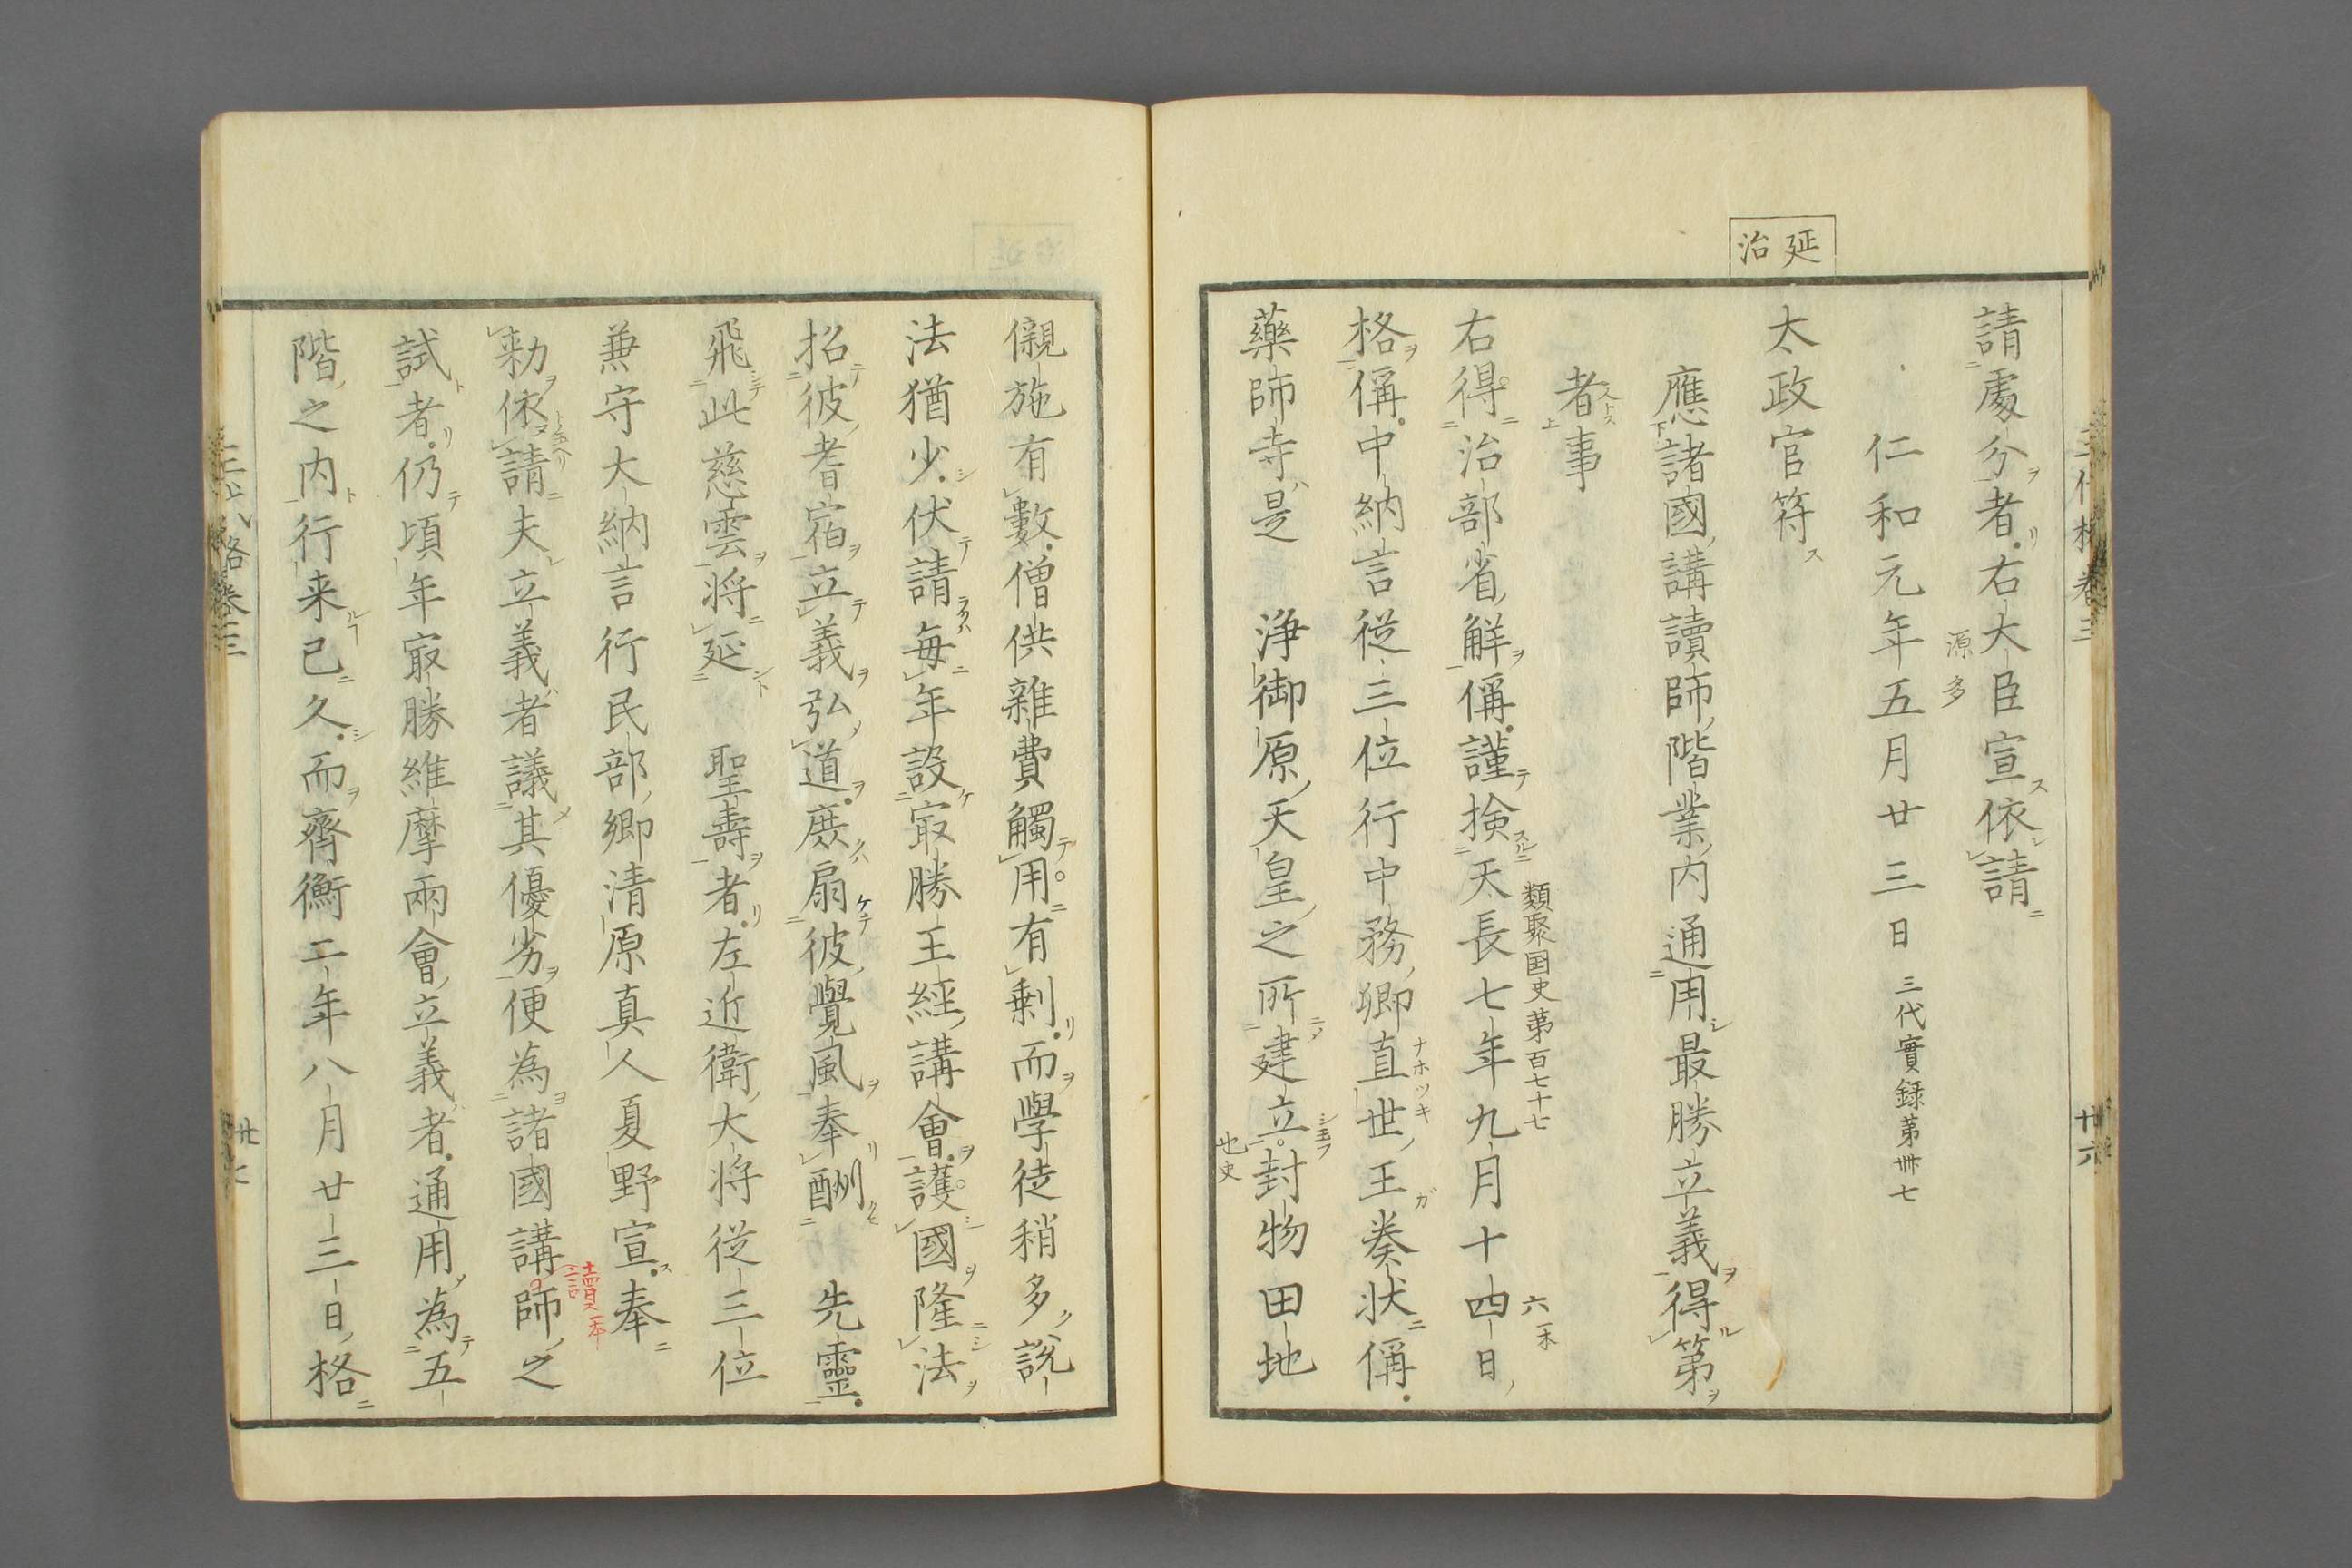 延治
請處分者右大臣宣依請
源多
仁和元年五月廿三日 三代實録苐卌七
太政官符
應諸國講讀師階業内通用最勝立義得第
者事
右得治部省解偁謹検天長七年九月十四日
類聚国史苐百七十七
六一本
格偁中納言從三位行中務卿直世王奏状偁
ナホツキ
藥師寺是 浄御原天皇之所建立封物田地
地史
儭施有數僧供雜費觸用有剰而學徒稍多說
法猶少伏請毎年設㝡勝王經講會護國隆法
招彼耆宿立義弘道庶扇彼覺風奉酬 先靈
飛此慈雲将延 聖壽者左近衛大将從三位
兼守大納言行民部卿清原真人夏野宣奉
勅依請夫立義者議其優劣便為諸國講師之
試者仍頃年㝡勝維摩兩會立義者通用為五
階之内行来已久而齊衡二年八月廿三日格
三代格卷三
廿六